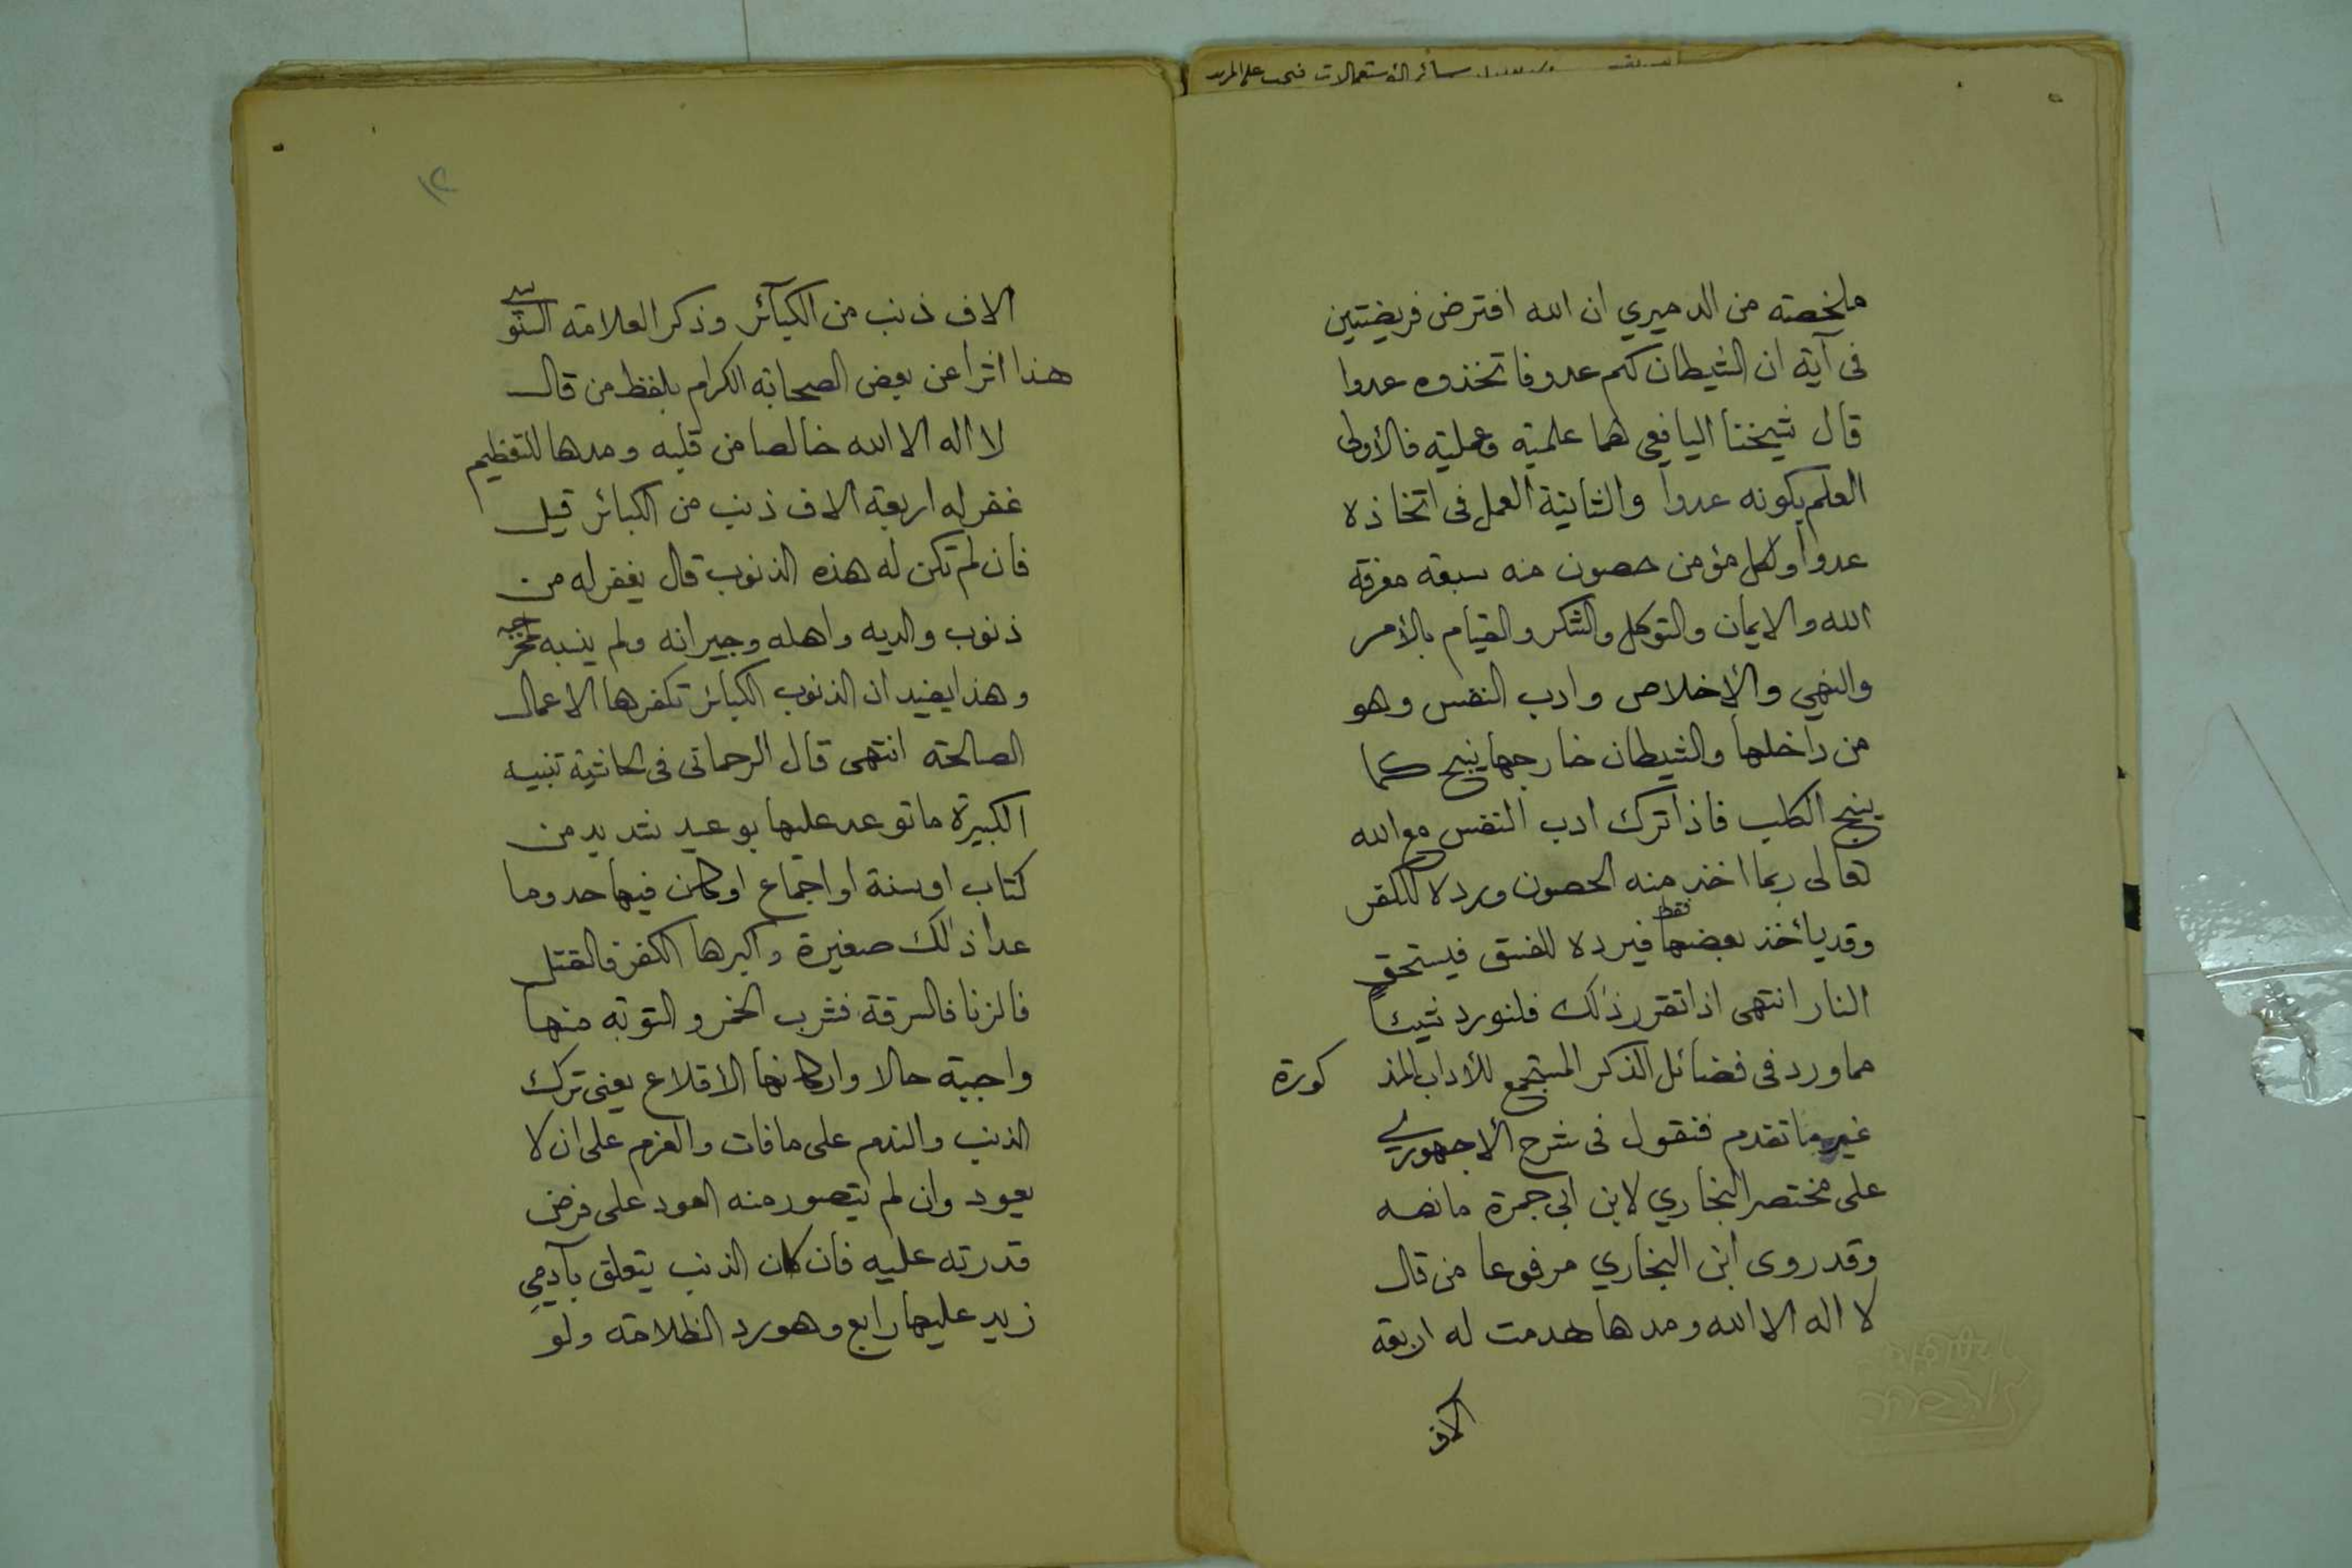 سائر الاستعمالات فيجب على المريد
ملخصته من الدميري ان الله افترض فريضتين
فى آية ان الشيطان لكم عدو فاتخذوه عدوا
قال شيخنا اليافعي لهما علمية وعملية فالأولى
العلم بكونه عدوا والثانية العمل فى اتخاذه
عدوا ولكل مؤمن حصون منه سبعة معرفة
الله والايمان والتوكل والشكر والقيام بالأمر
والنهي والأخلاص وادب النفس وهو
من داخلها والشيطان خارجها ينبح كما
ينبح الكلب فاذا ترك ادب النفس مع الله
تعالى ربما اخذ منه الحصون ورده للكفر
وقد يأخذ بعضها فقط فيرده للفسق فيستحق
النار انتهى اذا تقرر ذلك فلنورد شيئاً
مما ورد فى فضائل الذكر المستجمع للأداب المذ كورة
غير ما تقدم فنقول فى شرح الاجهوري
على مختصر البخاري لابن ابى جمرة ما نصه
وقد روى ابن البخاري مرفوعا من قال
لا اله الا الله ومدها هدمت له اربعة
الاف
١٢
الاف ذنب من الكبآئر وذكر العلامة السنوسي
هذا اثرا عن بعض الصحابة الكرام بلفظ من قال
لا اله الا الله خالصا من قلبه ومدها للتعظيم
غفر له اربعة الاف ذنب من الكبائر قيل
فان لم تكن له هذه الذنوب قال يغفر له من
ذنوب والديه واهله وجيرانه ولم ينسبه لمخرجه
وهذا يفيد ان الذنوب الكبائر تكفرها الاعمال
الصالحة انتهى قال الرحماتى فى الحاشية تنبيه
الكبيرة ما توعد عليها بوعيد شديد من
كتاب او سنة او اجماع او كان فيها حد وما
عدا ذلك صغيرة واكبرها الكفر فالقتل
فالزنا فالسرقة فشرب الخمر والتوبة منها
واجبة حالا واركانها الاقلاع يعنى ترك
الذنب والندم على ما فات والعزم على ان لا
يعود وان لم يتصور منه العود على فرض
قدرته عليه فان كان الذنب يتعلق بآدمي
زيد عليها رابع وهو رد الظلامة ولو